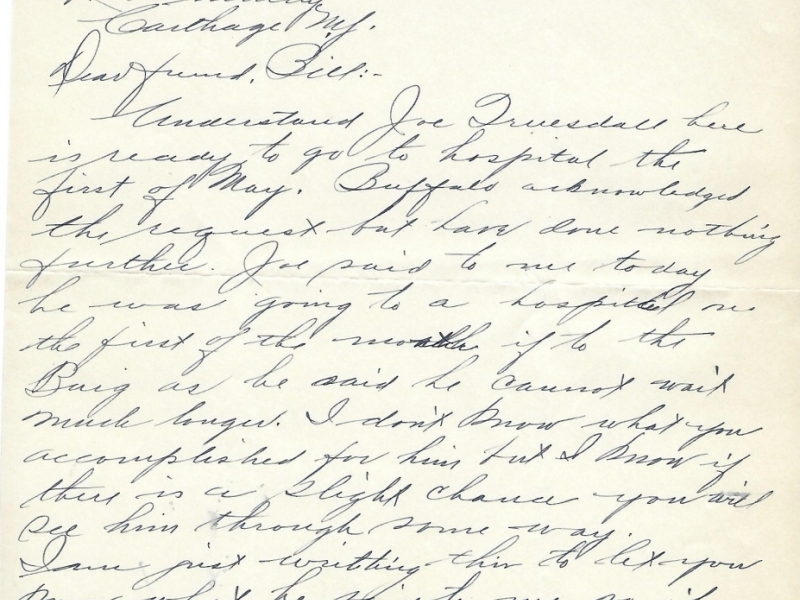 Carthage N.Y.
Dear friend, Bill:-
Understand Joe Truesdall here
is ready to go to hospital the
first of May. Buffalo acknowledged
the request but have done nothing
further. Joe said to me today
he was going to a hospital on
the first of the month if to the
as he said he cannot wait
much longer. I don't know what you
accomplished for him but I know if
there is a slight chance you will
see him through some way.
I am just writting this to let you
what he